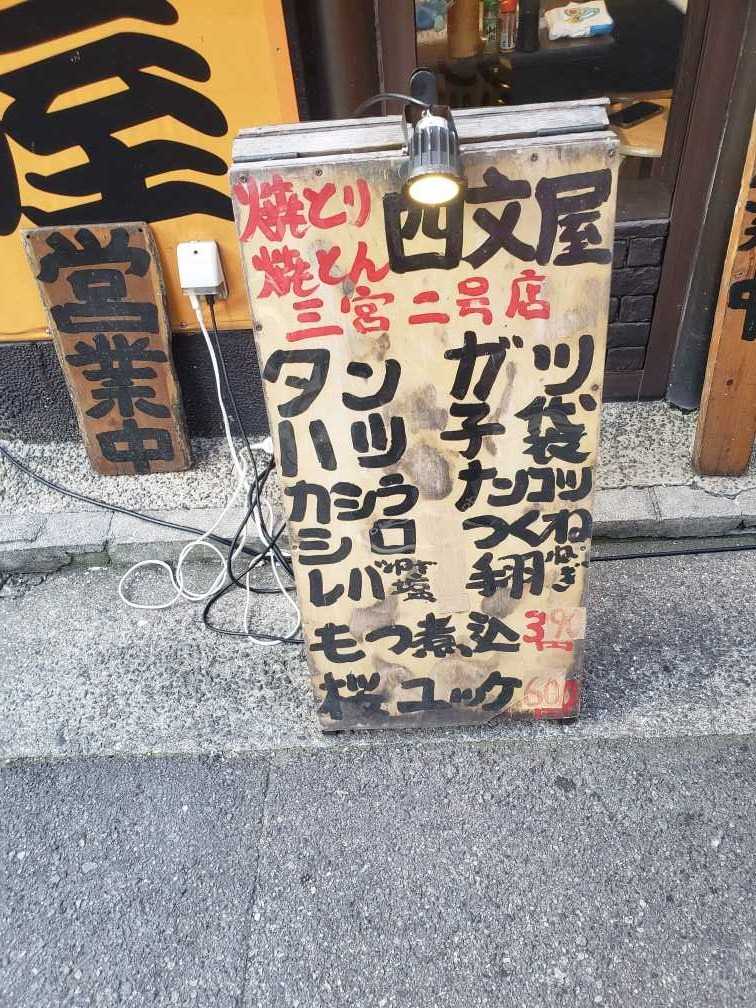 屋
営業中
焼とり
焼とん
四文屋
三宮二号店
タン ガツ
ハツ 子袋
カシラ ナンコツ
シロ つくね
レバ 塩 手羽 ねぎ
もつ煮込 390
桜ユッケ 600